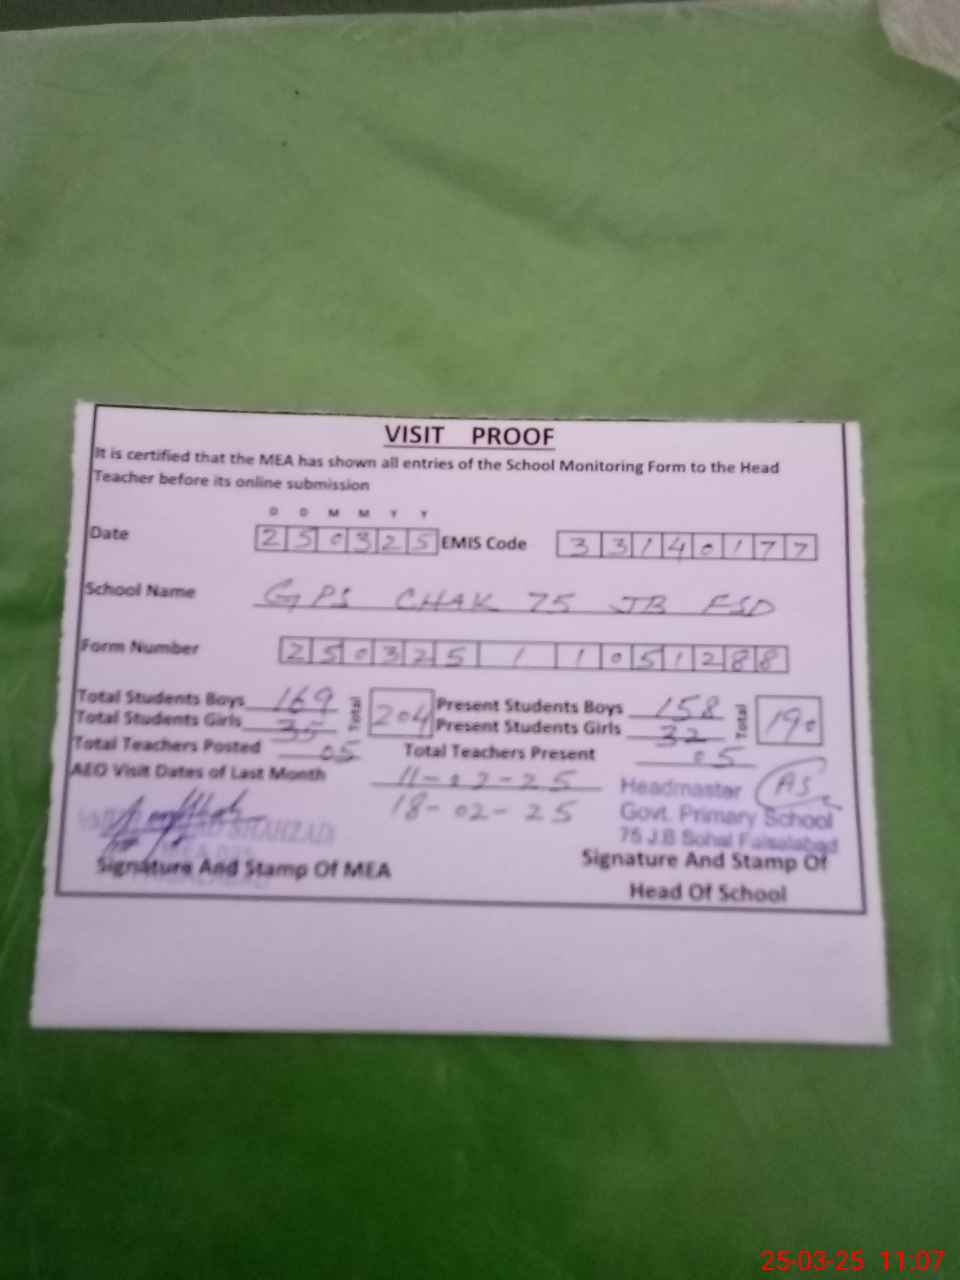 VISIT PROOF
It is certified that the MEA has shown all entries of the School Monitoring Form to the Head
Teacher before its online submission
D D M M Y Y
Date 250325 EMIS Code 33140177
School Name GPS CHAK 75 JB FSD
Form Number 250325 1 1051288
Total Students Boys 169 Total 204 Present Students Boys 158 Total 190
Total Students Girls 35 Present Students Girls 32
Total Teachers Posted 05 Total Teachers Present 05
AEO Visit Dates of Last Month 11-02-25
18-02-25
Headmaster
Govt. Primary School
75 J.B Sohal Faisalabad
Signature And Stamp Of MEA
Signature And Stamp Of
Head Of School
25-03-25 11:07